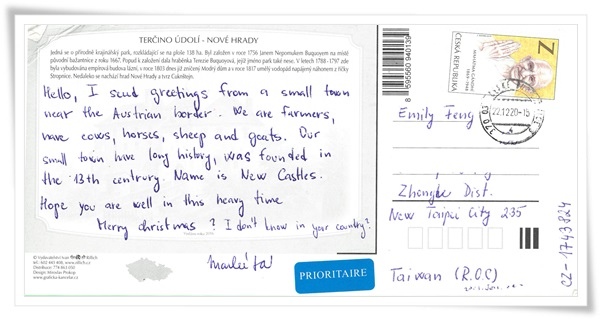 TERČINO ÚDOLÍ - NOVÉ HRADY
Jedná se o přírodně krajinářský park, rozkládající se na ploše 138 ha. Byl založen v roce 1756 Janem Nepomukem Buquoyem na místě
původní bažantnice z roku 1667. Popud k založení dala hraběnka Terezie Buquoyová, jejíž jméno park také nese. V letech 1788 - 1797 zde
byla vybudována empírová budova lázní, v roce 1803 dnes již zničený Modrý dům a v roce 1817 uměly vodopád napájený náhonem z říčky
Stropnice. Nedaleko se nachází hrad Nové Hrady a tvrz Cuknštejn.
Hello, I send greetings from a small town
near the Austrian border. We are farmers,
have cows, horses, sheep and goats. Our
small town have long history, was founded in
the 13th centrury. Name is New Castles.
Hope you are well in this heavy time
Merry christmas ? I don't know in your country?
Markéta
© Vydavatelství
tel.: 602 461 408, www.
Distribuce: 778 063 050
Design: Miroslav Prokop
PRIORITAIRE
8 595560 940139
Z
ČESKÁ REPUBLIKA
1869 - 1948
370 00
22.12.20-15
Emily Feng
Zhonghe Dist.
New Taipei City 235
Taiwan (R.O.C)
CZ-1743824